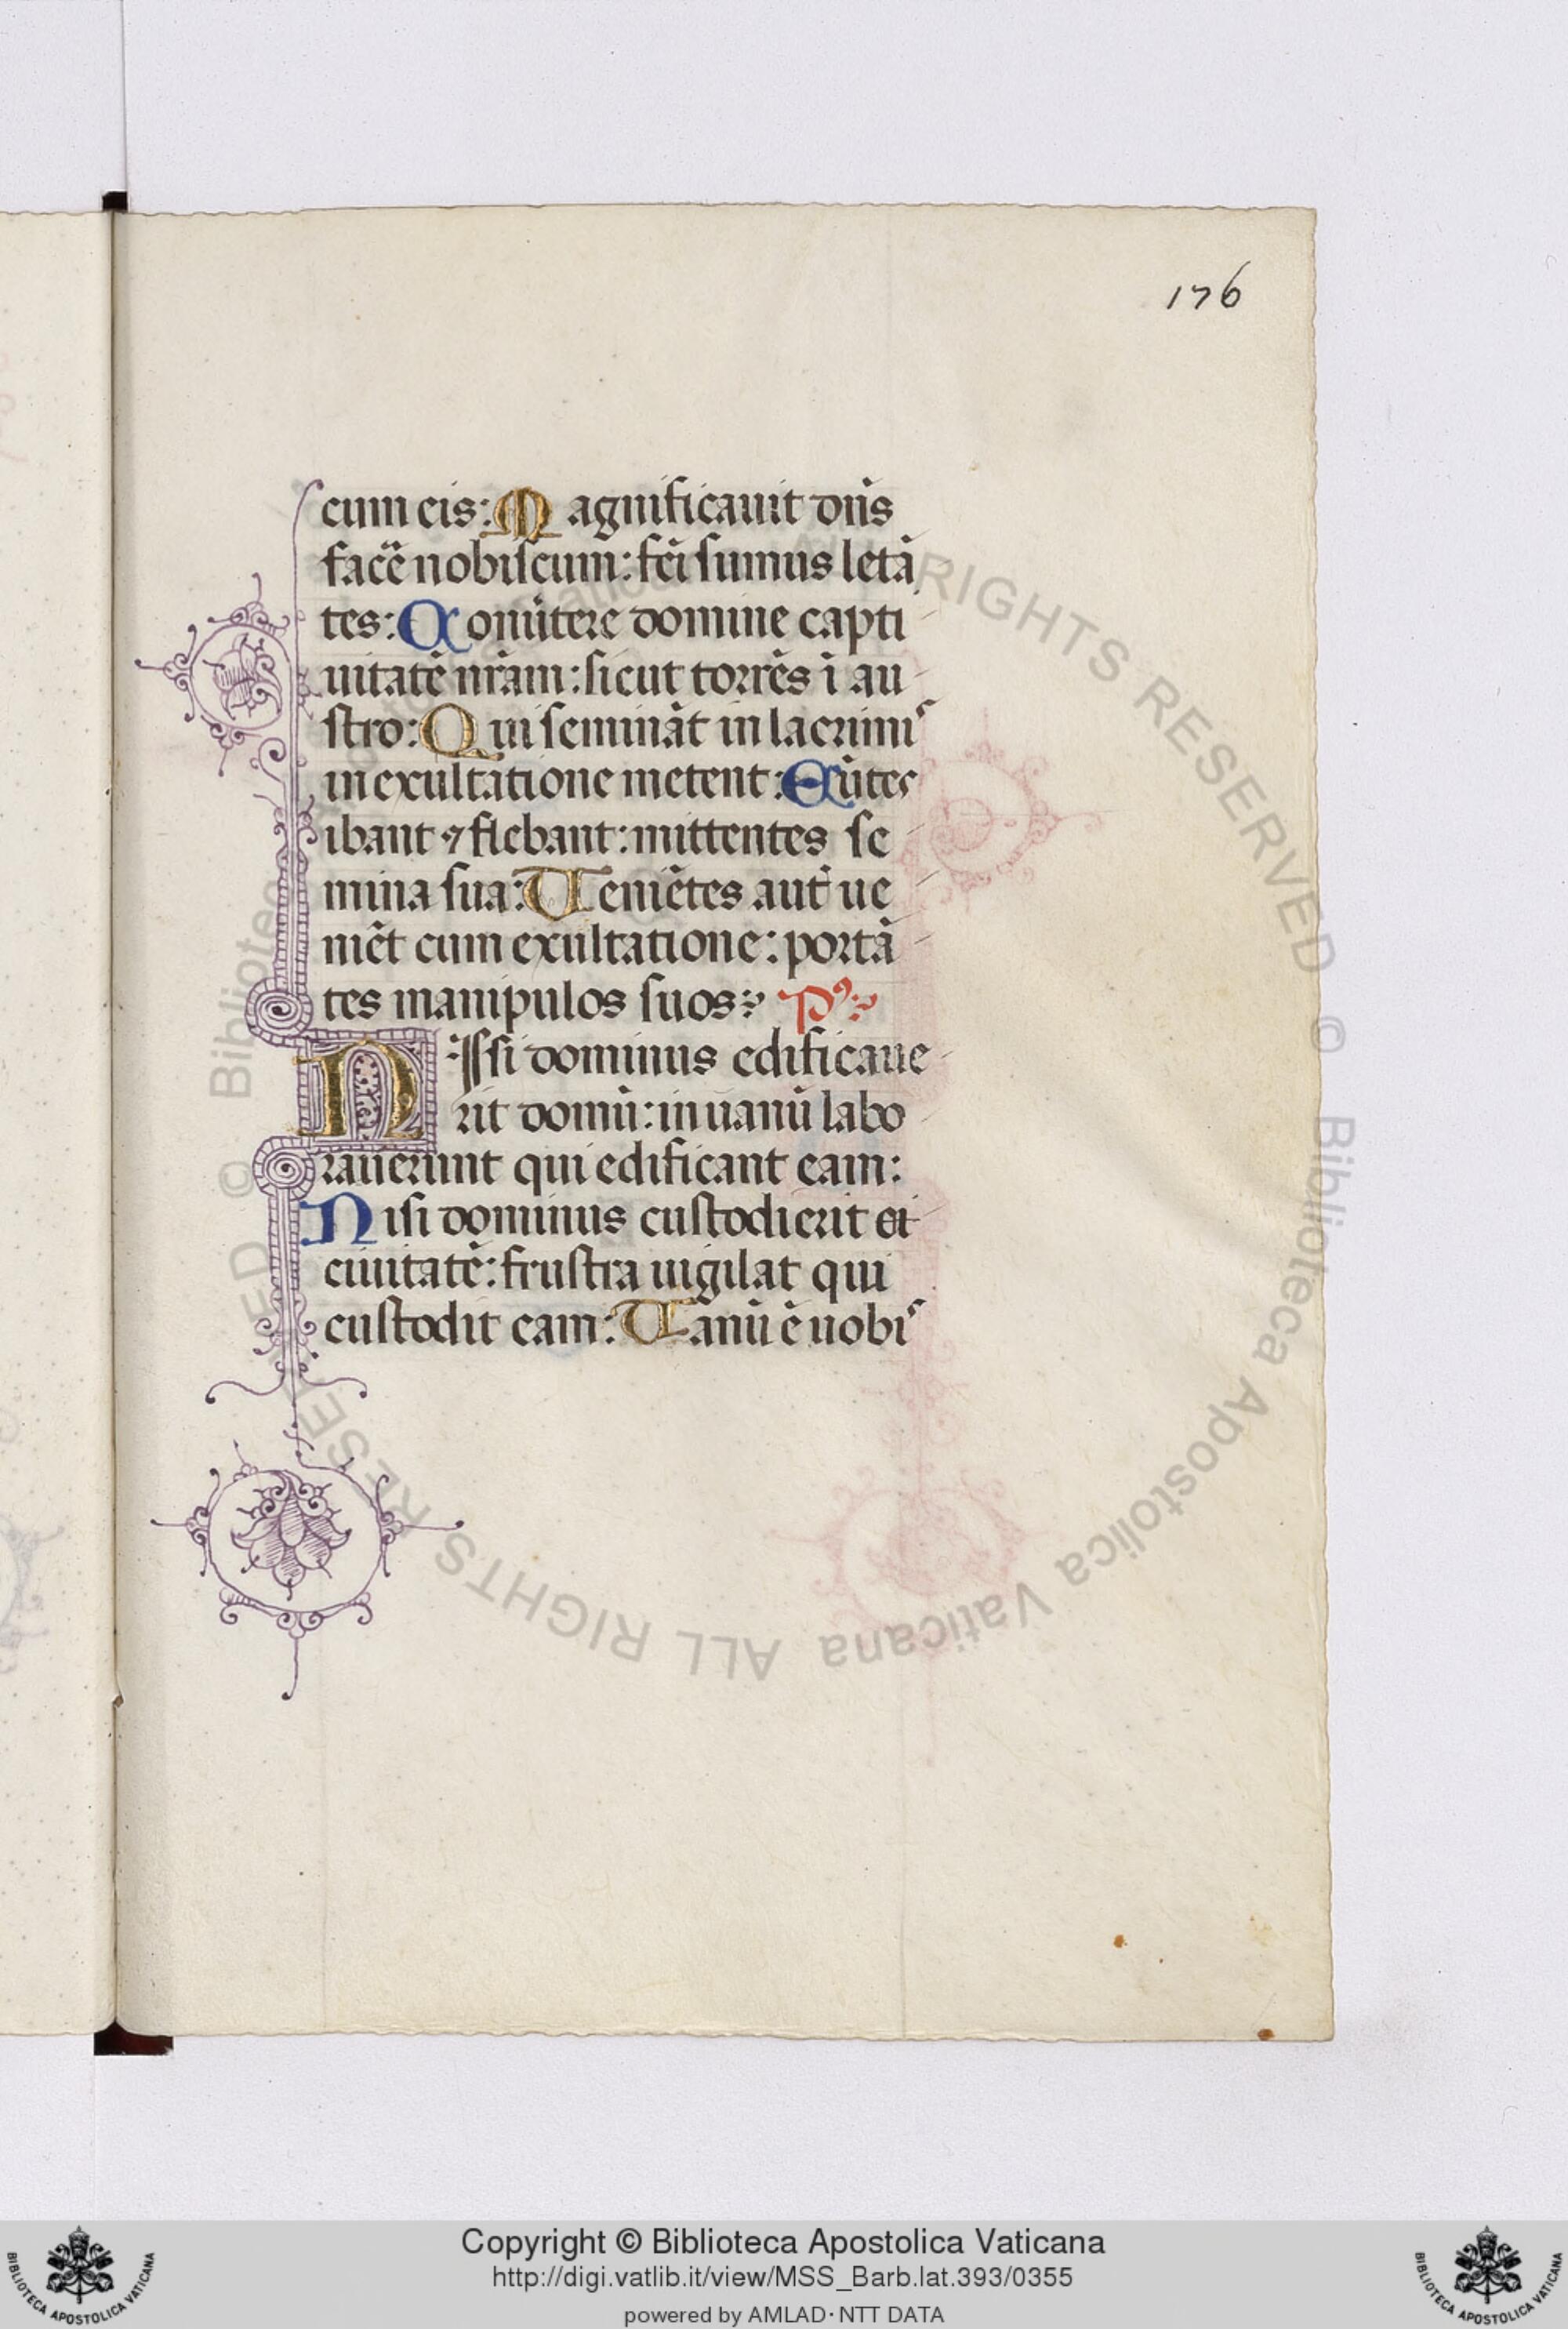 176
cum eis: Magnificauit dn̄s
facē nobiscum: fc̄i sumus letā
tes: Conūtere domine capti
uitatē nr̄am: sicut torrēs ī au
stro: Qui semināt in lacrimis
in exultatione metent: Eūtes
ibant ⁊ flebant: mittentes se
mina sua: Ueniētes aut̄ ue
niēt cum exultatione: portā
tes manipulos suos: pꝰ:
Nissi dominus edificaue
rit domū: in uanū labo
rauerunt qui edificant eam:
Nisi dominus custodierit
ciuitatē: frustra uigilat qui
custodit eam: Uanū ē uobis
© Biblioteca Apostolica Vaticana ALL RIGHTS RESERVED
© Biblioteca Apostolica Vaticana ALL RIGHTS RESERVED
Copyright © Biblioteca Apostolica Vaticana
http://digi.vatlib.it/view/MSS_Barb.lat.393/0355
powered by AMLAD·NTT DATA
BIBLIOTECA APOSTOLICA VATICANA
BIBLIOTECA APOSTOLICA VATICANA